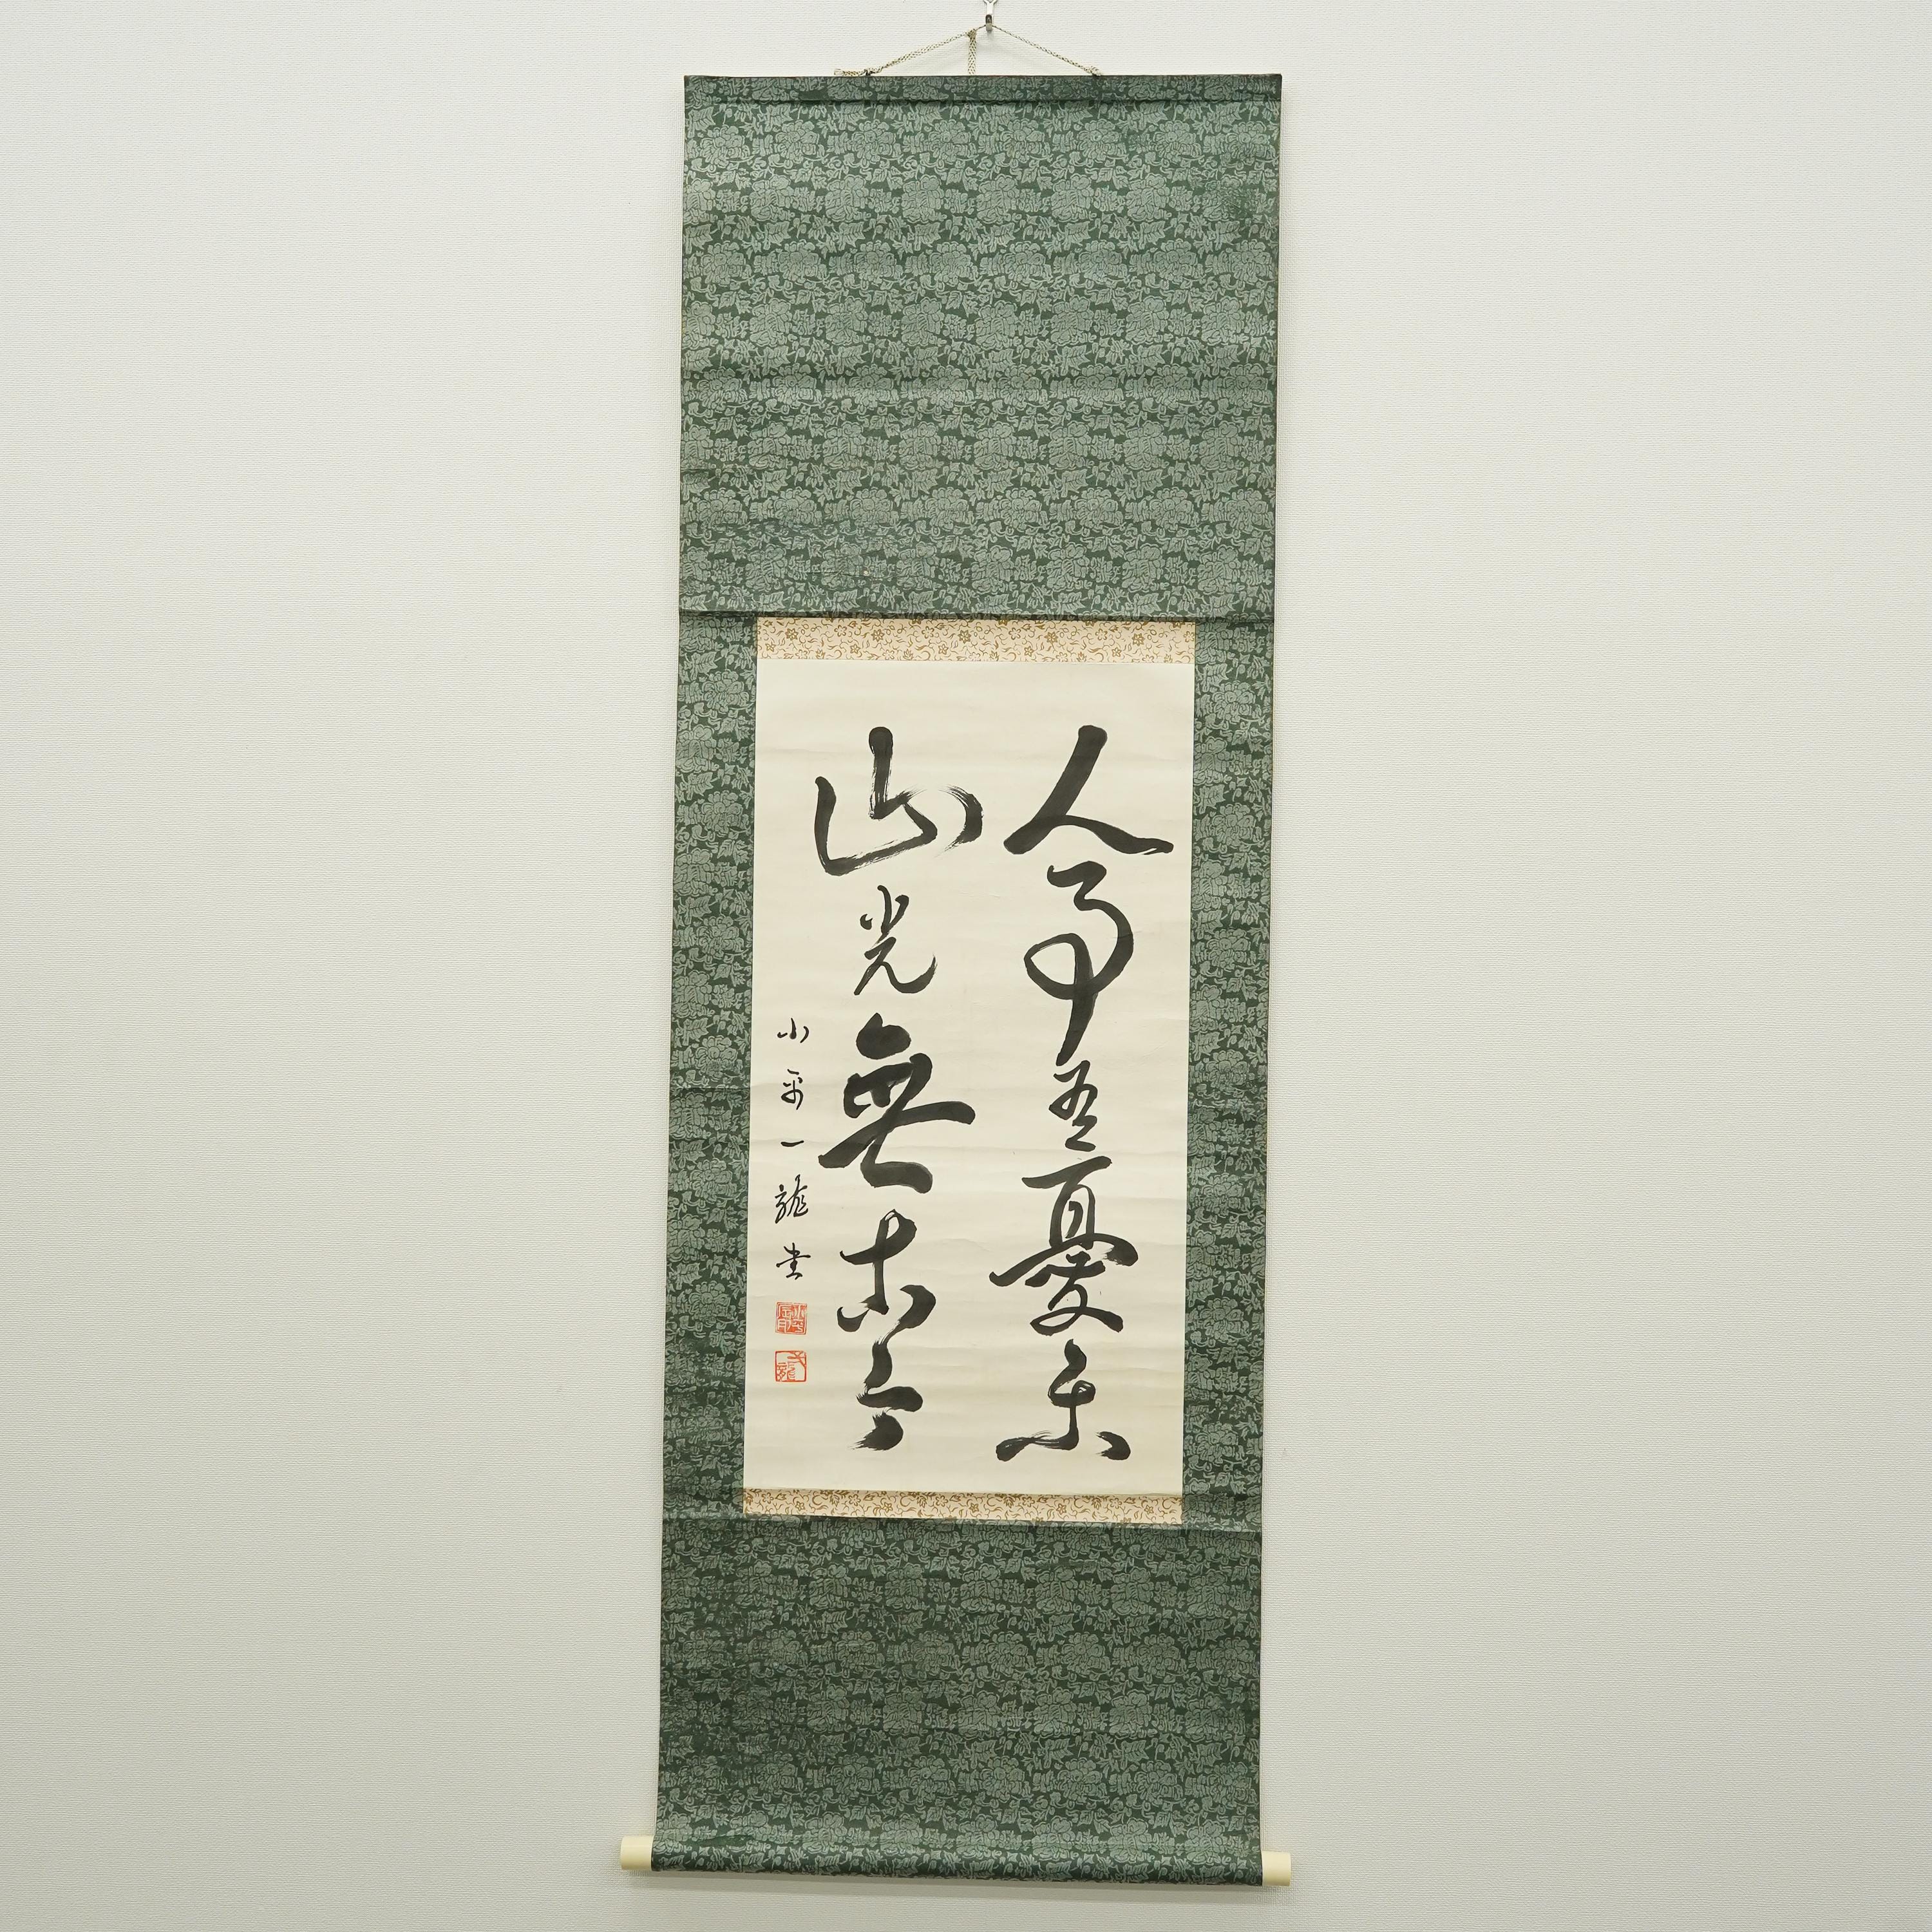 人事互憂樂
山光無古今
小平一龍書